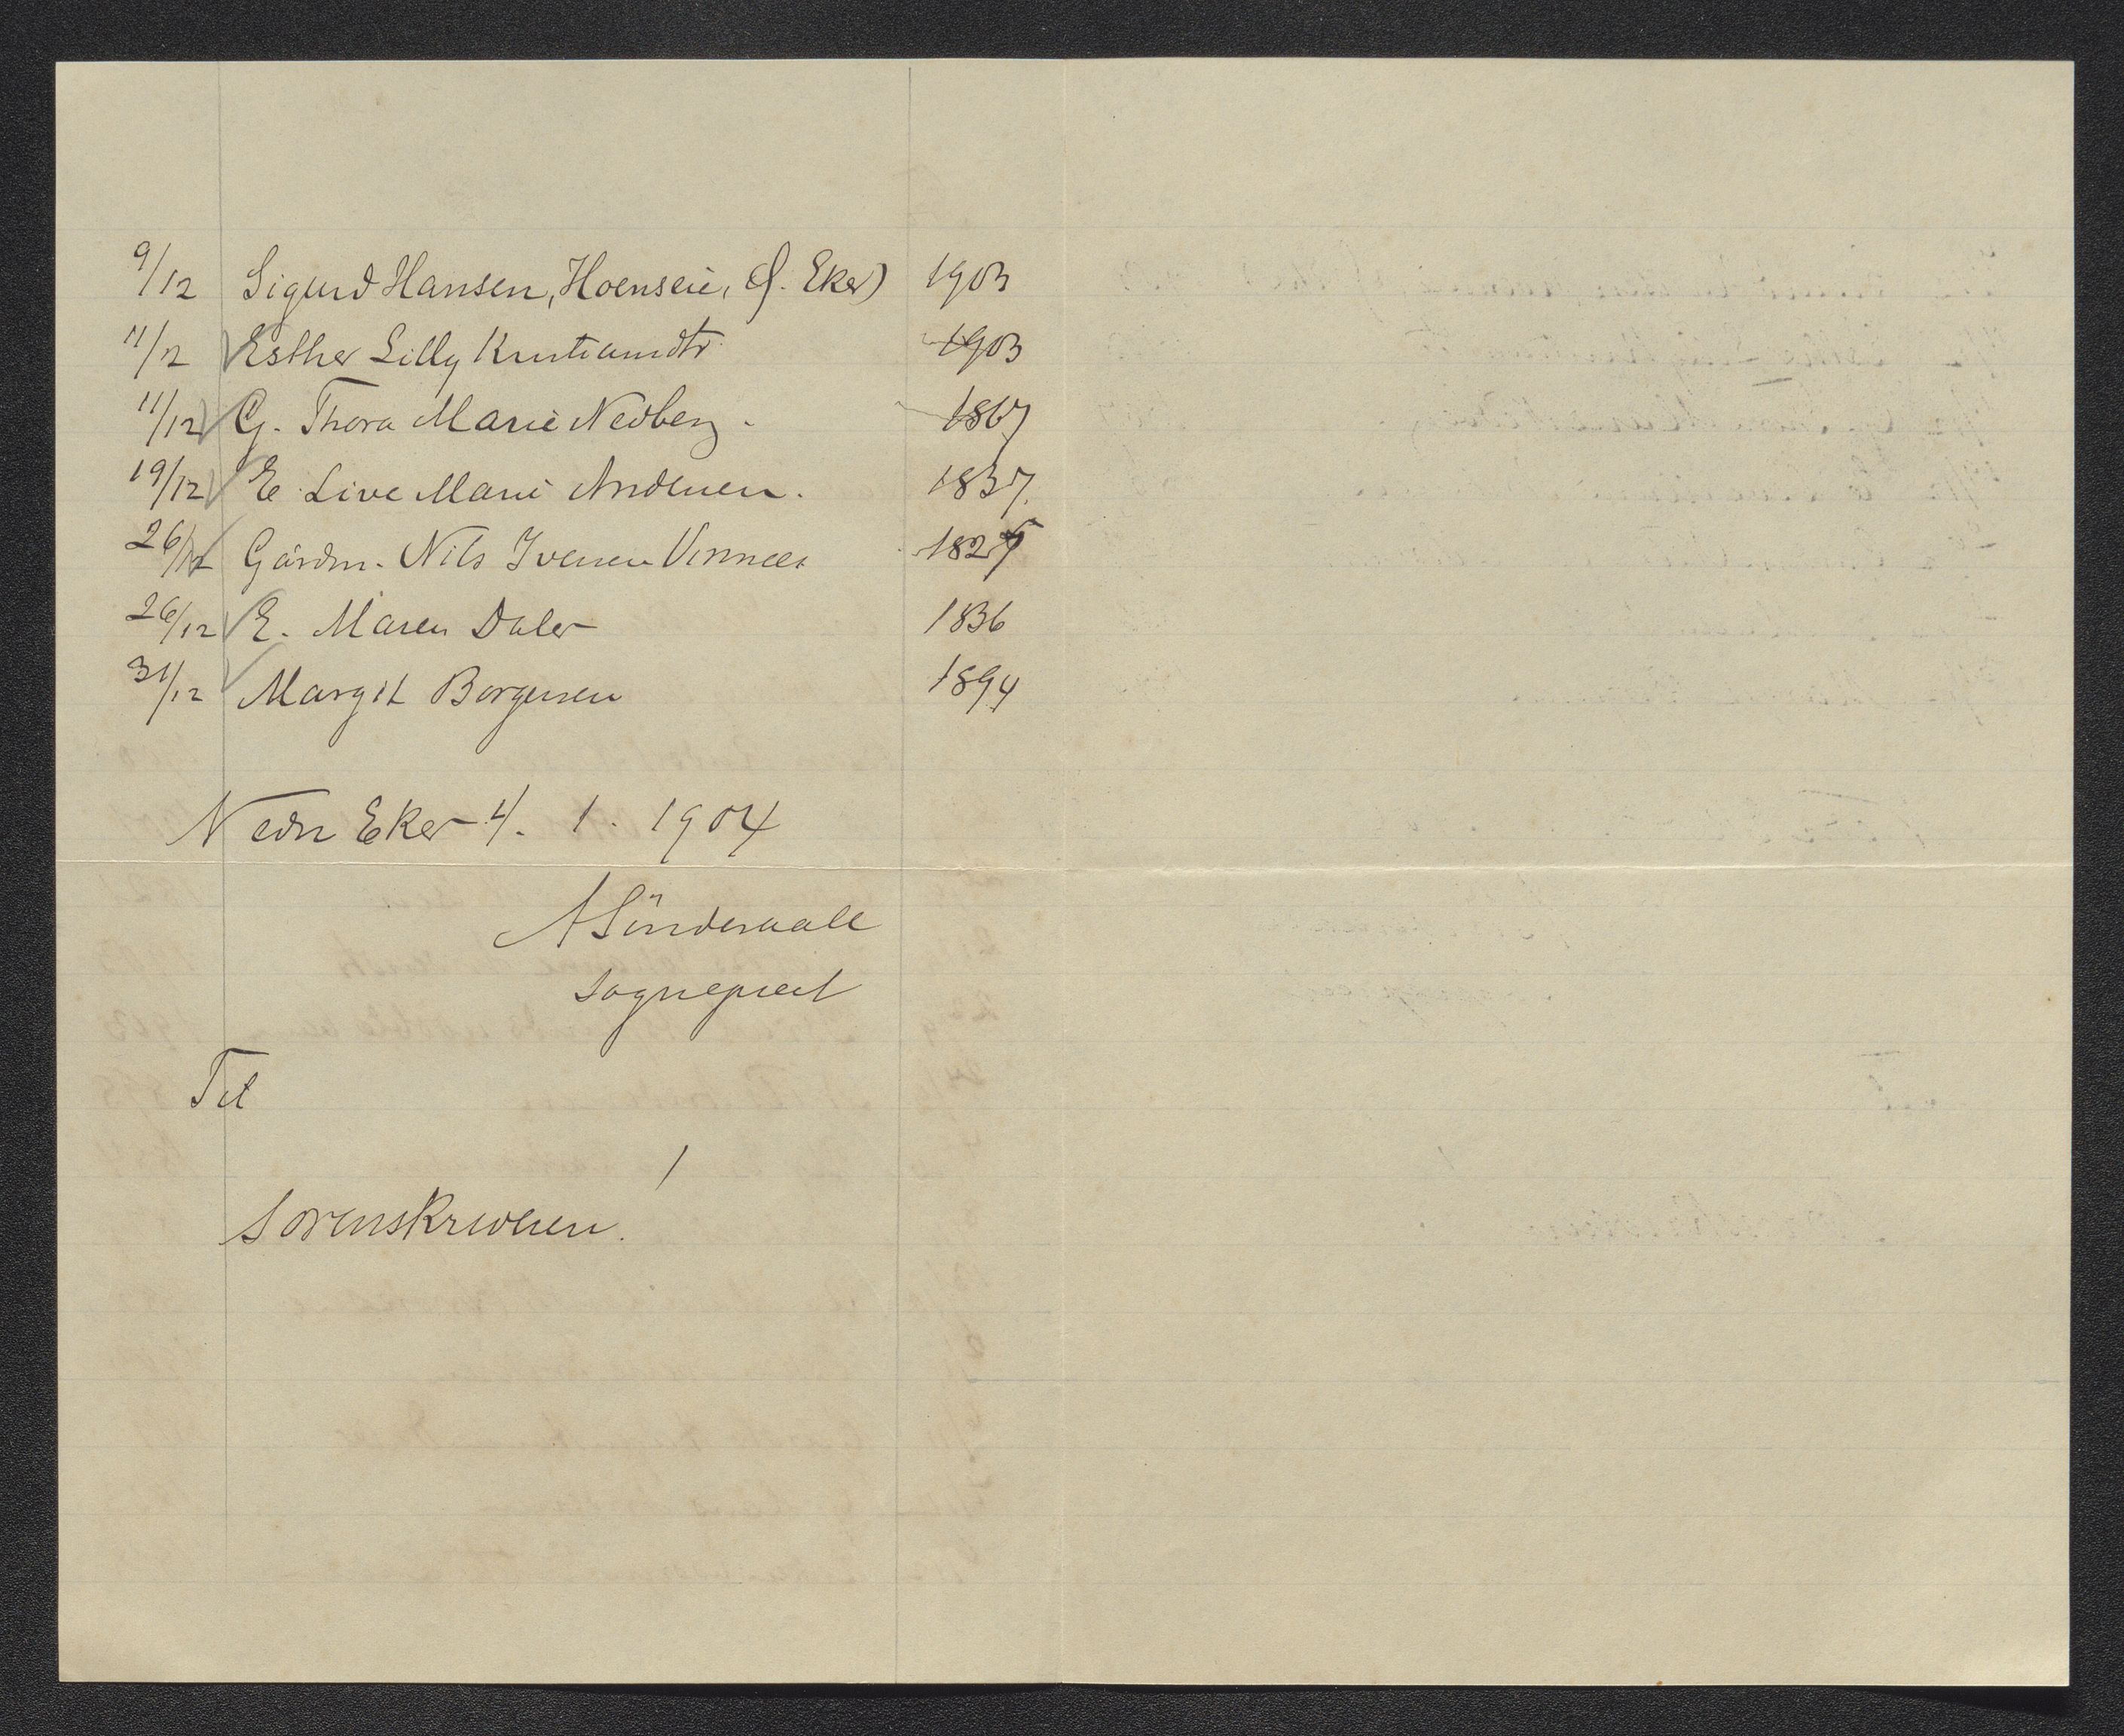 9/12 Sigurd Hansen, Hoenseie, (Ø. Eker) 1903
11/12 Esther Lilly Kristiansdtr. 1903
11/12 G. Thora Marie Nedberg. 1867
19/12 E. Live Marie Andersen. 1837.
26/12 Gårdm. Nils Iversen Vinnes 1827
26/12 E. Maren Daler 1836
31/12 Margit Borgersen 1894
Nedre Eker 4. 1. 1904
sogneprest
Til
sorenskriveren!